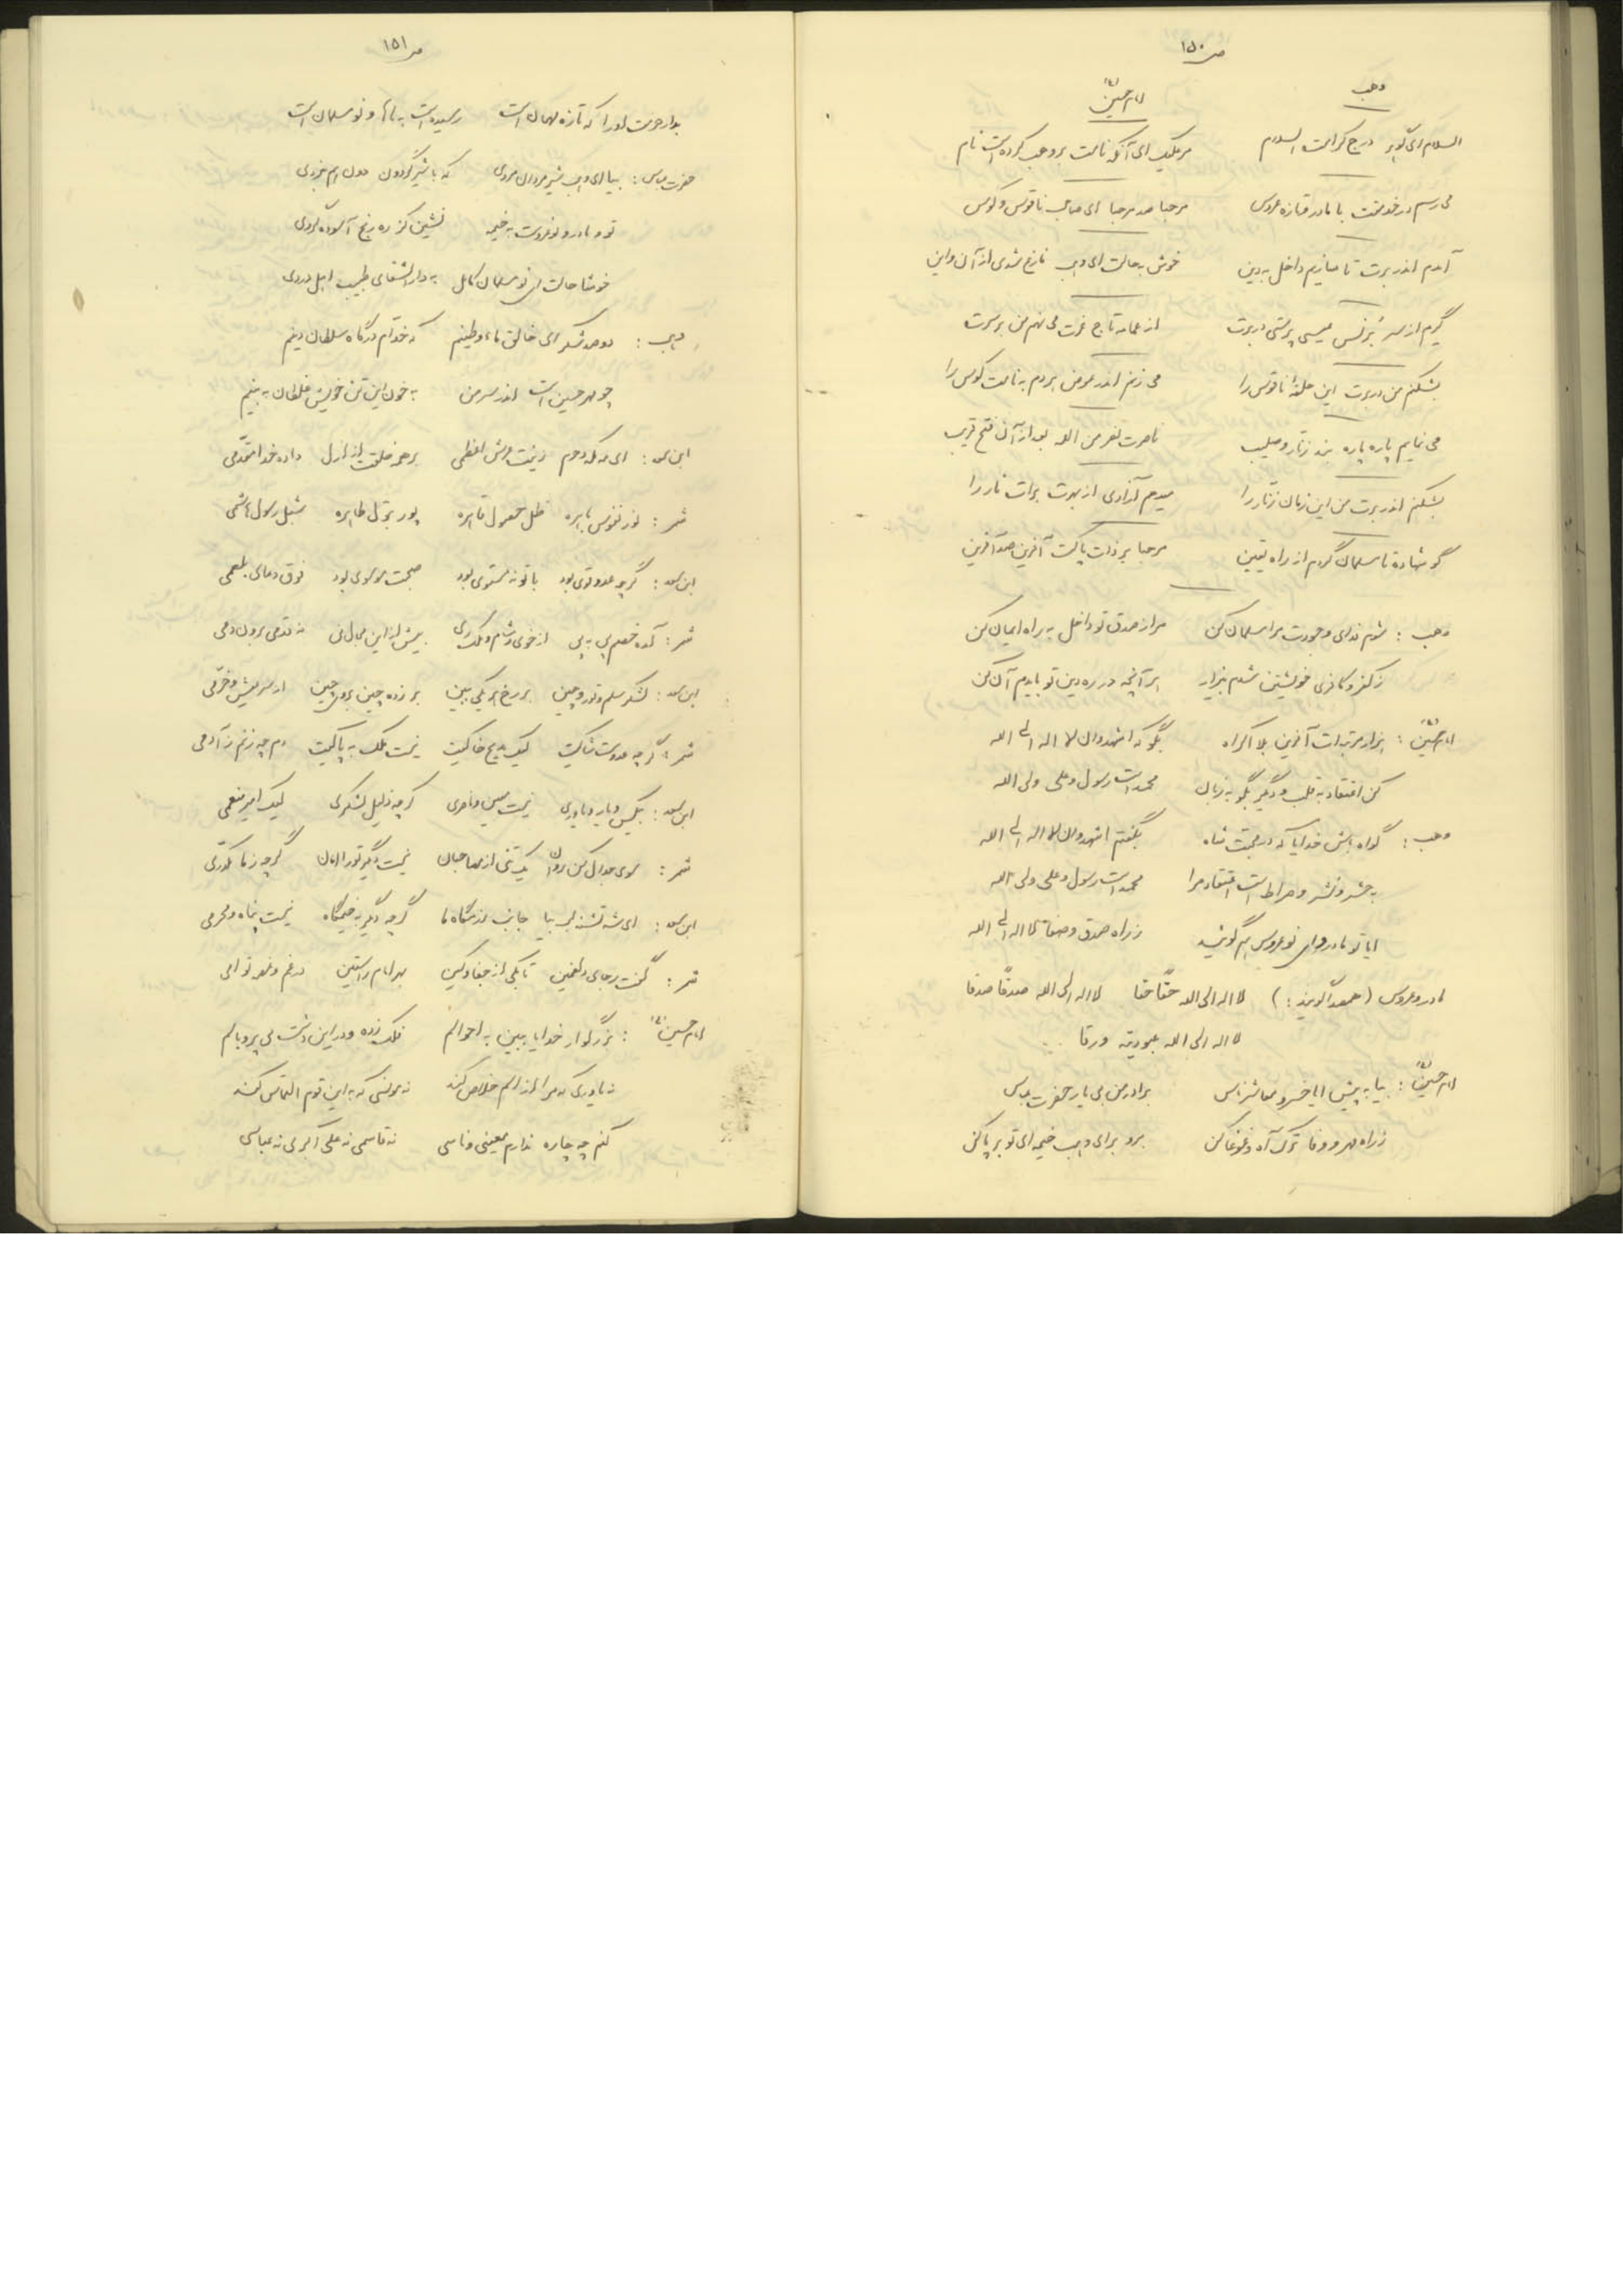 ص ۱۵۰
وهب
امام حسین
السلام ای گوهر درج کرامت السلام مرعلیک ای آنکه نامت بر وهب کرده است نام
می‌رسم در خدمتت با مادر و تازه عروس مرحبا صد مرحبا ای صاحب ناقوس و کوس
آمدم اندر برت تا سازیم داخل به دین خوش به حالت ای وهب فارغ شدی از آن و این
گیرم از سر برنس عیسی پرستی در برت از عمامه تاج عزت می نهم من بر سرت
بشکنم من در برت این حلقهٔ ناقوس را می زنم اندر عوض هر دم به نامت کوس را
می نمایم پاره پاره بند زنار و صلیب ناصرت نصر من الله بعد از آن فتح قریب
بشکنم اندر برت من این زمان زنار را میدهم آزادی از بهرت برات نار را
گو شهاده تا مسلمان گردم از راه یقین مرحبا بر ذات پاکت آفرین صد آفرین
وهب : شوم فدای وجودت مرا مسلمان کن مرا ز صدق تو داخل به راه ایمان کن
ز کفر و کافری خویشتن شدم بیزار هر آنچه در ره دین تو بایدم آن کن
امام حسین : هزار مرتبه ات آفرین بلا اکراه بگو که اشهد وان لا اله الی الله
کن اعتقاد به قلب و دگر بگو به زبان محمد است رسول و علی ولی الله
وهب : گواه باش خدایا که در محبت شاه بگفتم اشهد وان لا اله الی الله
به حشر و نشر و صراط است اعتقاد مرا محمد است رسول و علی ولی الله
ایا تو مادر و ای نوعروس هم گوئید ز راه صدق و صفا لا اله الی الله
مادر و عروس (همصدا گویند :) لا اله الی الله حقاً حقا لا اله الی الله صدقاً صدقا
لا اله الی الله عبودیته ورقا
امام حسین : بیا به پیش ایا خسرو معاشر ناس برادر من بی یار حضرت عباس
ز راه مهر و وفا ترک آه و غوغا کن برو برای وهب خیمه ای تو بر پا کن
ص ۱۵۱
بدار حرمت او را که تازه مهمان است رسیده است به ما و نو مسلمان است
حضرت عباس : بیا ای وهب شیر مردان مردی که با شیر گردون هم نبردی
تو و مادر و نوعروست به خیمه نشین کز ره رنج آسوده گردی
خوشا حالت ای نو مسلمان کامل به دار الشفای طبیب اهل دردی
وهب : دوصد شکر ای خالق ماء و طینم که خدام درگاه سلطان دینم
چو مهر حسین است اندر سر من به خون این تن خویش غلطان ببینم
ابن سعد : ای مه مکه و حرم زینت عرش اعظمی بر همه خلقت از ازل داده خدا مقدمی
شمر : نور نفوس باهره ظل عقول قاهره پور بتول طاهره شبل رسول هاشمی
ابن سعد : گرچه عدو قوی بود با تو نه مستوی بود صحبت موسوی بود فوق دعای بلعمی
شمر : آمده خصم پی به پی از خوی و شام و ملک ری بیش از این مجال نی نه قدمی برون دمی
ابن سعد : لشکر سلم و تور و چین بر رخ هر یکی ببین بر زده چین بروی چین از سر عیش و خرمی
شمر : گرچه عدوست شاکیت لیک مدیح خاکیت نیست ملک به پاکیت دم چه زنم ز آدمی
ابن سعد : بیکس و یار و یاوری نیست معین و ناصری گرچه ذلیل لشکری لیک امیر منعمی
شمر : سوی جدال کن روان یک تنی از مصاحبان نیست دگر تو را امان گرچه ز ما مکدری
ابن سعد : ای شه تشنه لب بیا جانب رزمگاه ما گرچه دگر به خیمگاه نیست پناه و محرمی
شمر : گشت رجای دلغمین تا بکی از جفا و کین بهر امام راستین در غم و غصه توامی
امام حسین : بزرگوار خدایا ببین به احوالم فلک زده و در این دشت بی پر و بالم
نه یاوری که مرا از الم خلاص کند نه مونسی که به این قوم التماس کند
کنم چه چاره ندارم معینی و ناسی نه قاسمی نه علی اکبری نه عباسی